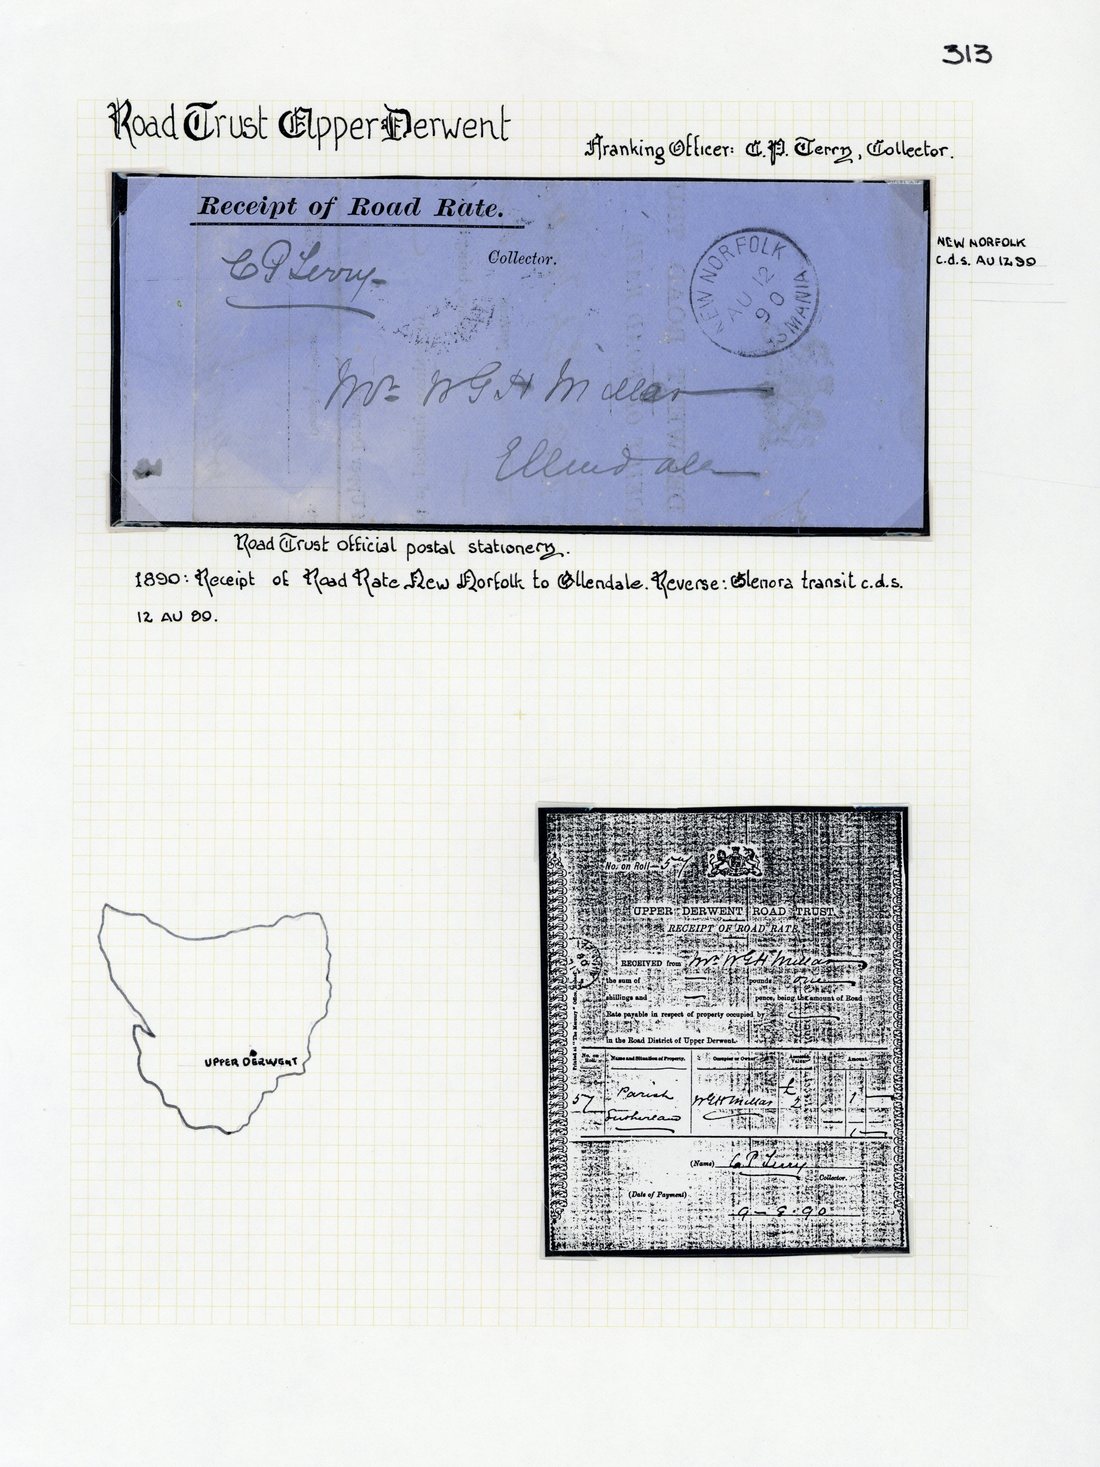 313
Road Trust Upper Derwent
Franking Officer: C.P. Terry, Collector.
Receipt of Road Rate.
C P Terry
Collector.
NEW NORFOLK
AU 12
90
NEW NORFOLK
c.d.s. AU 12 90
Mr W G H Millar
Ellendale
Road Trust official postal stationery.
1890: Receipt of Road Rate New Norfolk to Ellendale. Reverse: Glenora transit c.d.s.
12 AU 90.
UPPER DERWENT
No. on Roll 57
UPPER DERWENT ROAD TRUST.
RECEIPT OF ROAD RATE.
RECEIVED from Mr W G H Millar
the sum of pounds one
shillings and pence, being the amount of Road
Rate payable in respect of property occupied by
in the Road District of Upper Derwent.
No. on Roll. Name and Situation of Property. Occupier or Owner. Value. Amount.
57 Parish Sutherland W G H Millar £ 2 1
1
(Name) C. P. Terry
Collector.
(Date of Payment)
9-8-90